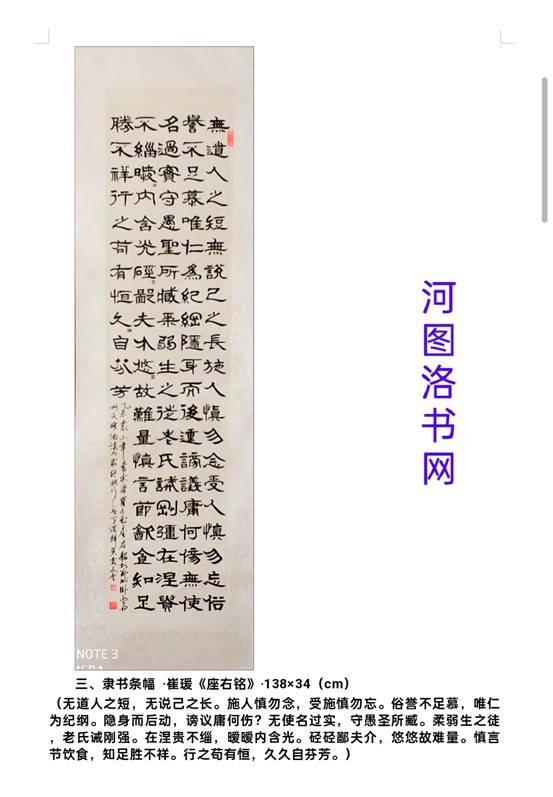 無道人之短無說己之長施人慎勿念受人慎勿忘俗
譽不足慕唯仁為紀綱隱身而後動謗議庸何傷無使
名過實守愚聖所臧柔弱生之徒老氏誡剛彊在涅貴
不緇曖々內含光硜々鄙夫介悠々故難量慎言節飲食知足
勝不祥行之苟有恒久々自芬芳
河图洛书网
NOTE 3
三、隶书条幅 ·崔瑗《座右铭》·138×34（cm）
（无道人之短，无说己之长。施人慎勿念，受施慎勿忘。俗誉不足慕，唯仁
为纪纲。隐身而后动，谤议庸何伤？无使名过实，守愚圣所臧。柔弱生之徒
，老氏诫刚强。在涅贵不缁，暧暧内含光。硁硁鄙夫介，悠悠故难量。慎言
节饮食，知足胜不祥。行之苟有恒，久久自芬芳。）